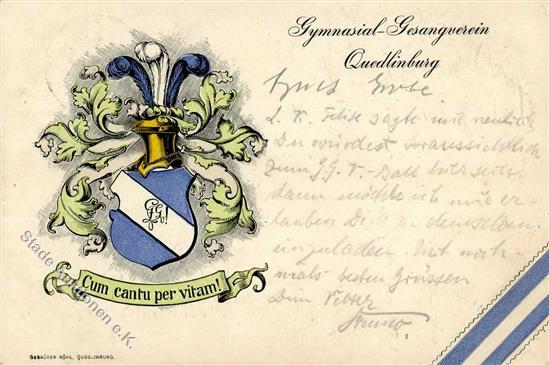 Gymnasial-Gesangverein
Quedlinburg
L. K. sagte mir neulich
Du würdest voraussichtlich
zum G. G. V. - Ball hier sein
dann möchte ich mir er-
lauben Dich zu demselben
einzuladen. Mit noch-
mals besten Grüssen
Dein Vetter
Cum cantu per vitam!
Stade Auktionen e.K.
GEBRÜDER RÖHL, QUEDLINBURG.